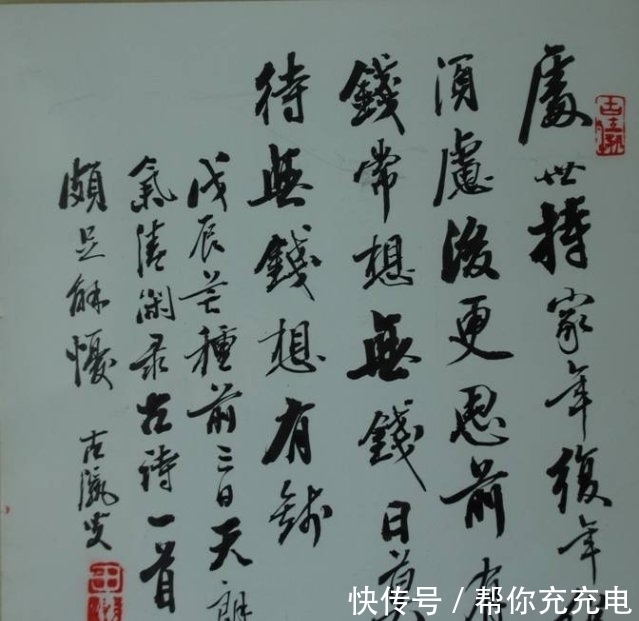 處世持家年復年
須慮後更思前有
錢常想無錢日莫
待無錢想有錢
戊辰芒種前三日天朗
氣清閑录古詩一首
頗足解懮 古瀛叟
快传号 / 帮你充充电